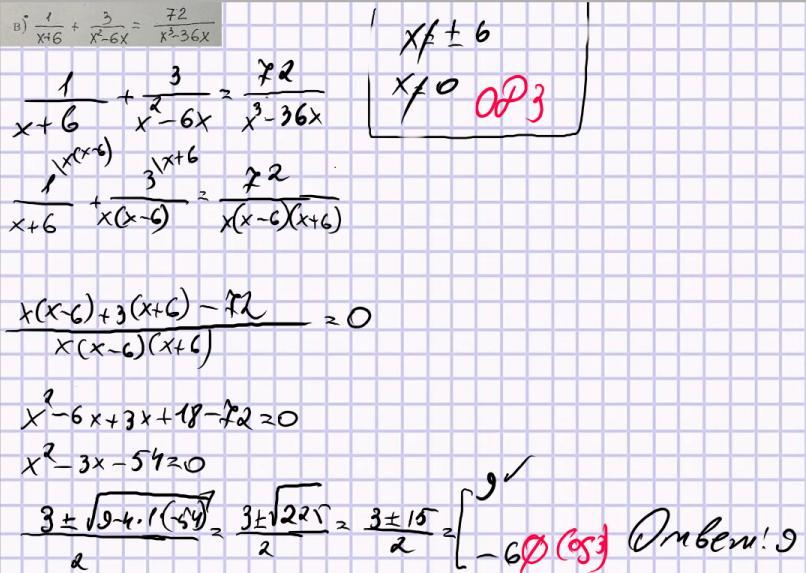 в) 1/(x+6) + 3/(x²-6x) = 72/(x³-36x)
x ≠ ± 6
x ≠ 0 ОРЗ
1/(x+6) + 3/(x²-6x) = 72/(x³-36x)
1\x(x-6)/(x+6) + 3\x+6/(x(x-6)) = 72/(x(x-6)(x+6))
(x(x-6)+3(x+6)-72)/(x(x-6)(x+6)) = 0
x²-6x+3x+18-72=0
x²-3x-54=0
(3±√(9-4·1(-54)))/2 = (3±√225)/2 = (3±15)/2 = [ 9 ✓
-6 ∅ (ОДЗ) Ответ: 9